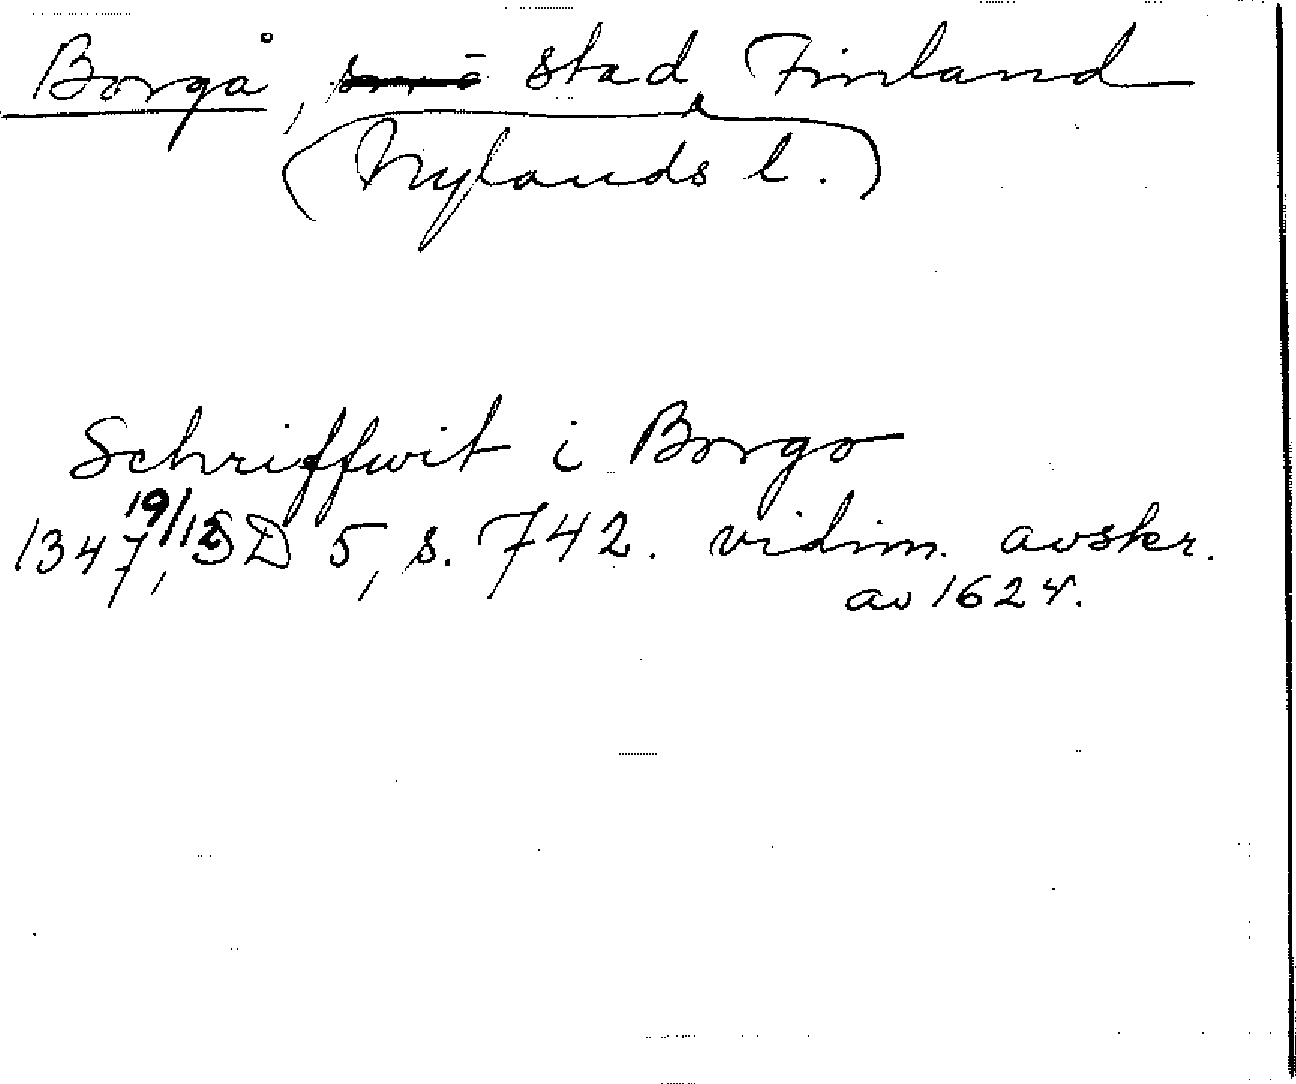 Borgå, stad, Finland
(Nylands l.)
Schriffwit i Borgo
1347 19/12, SD 5, s. 742. vidim. avskr.
av 1624.